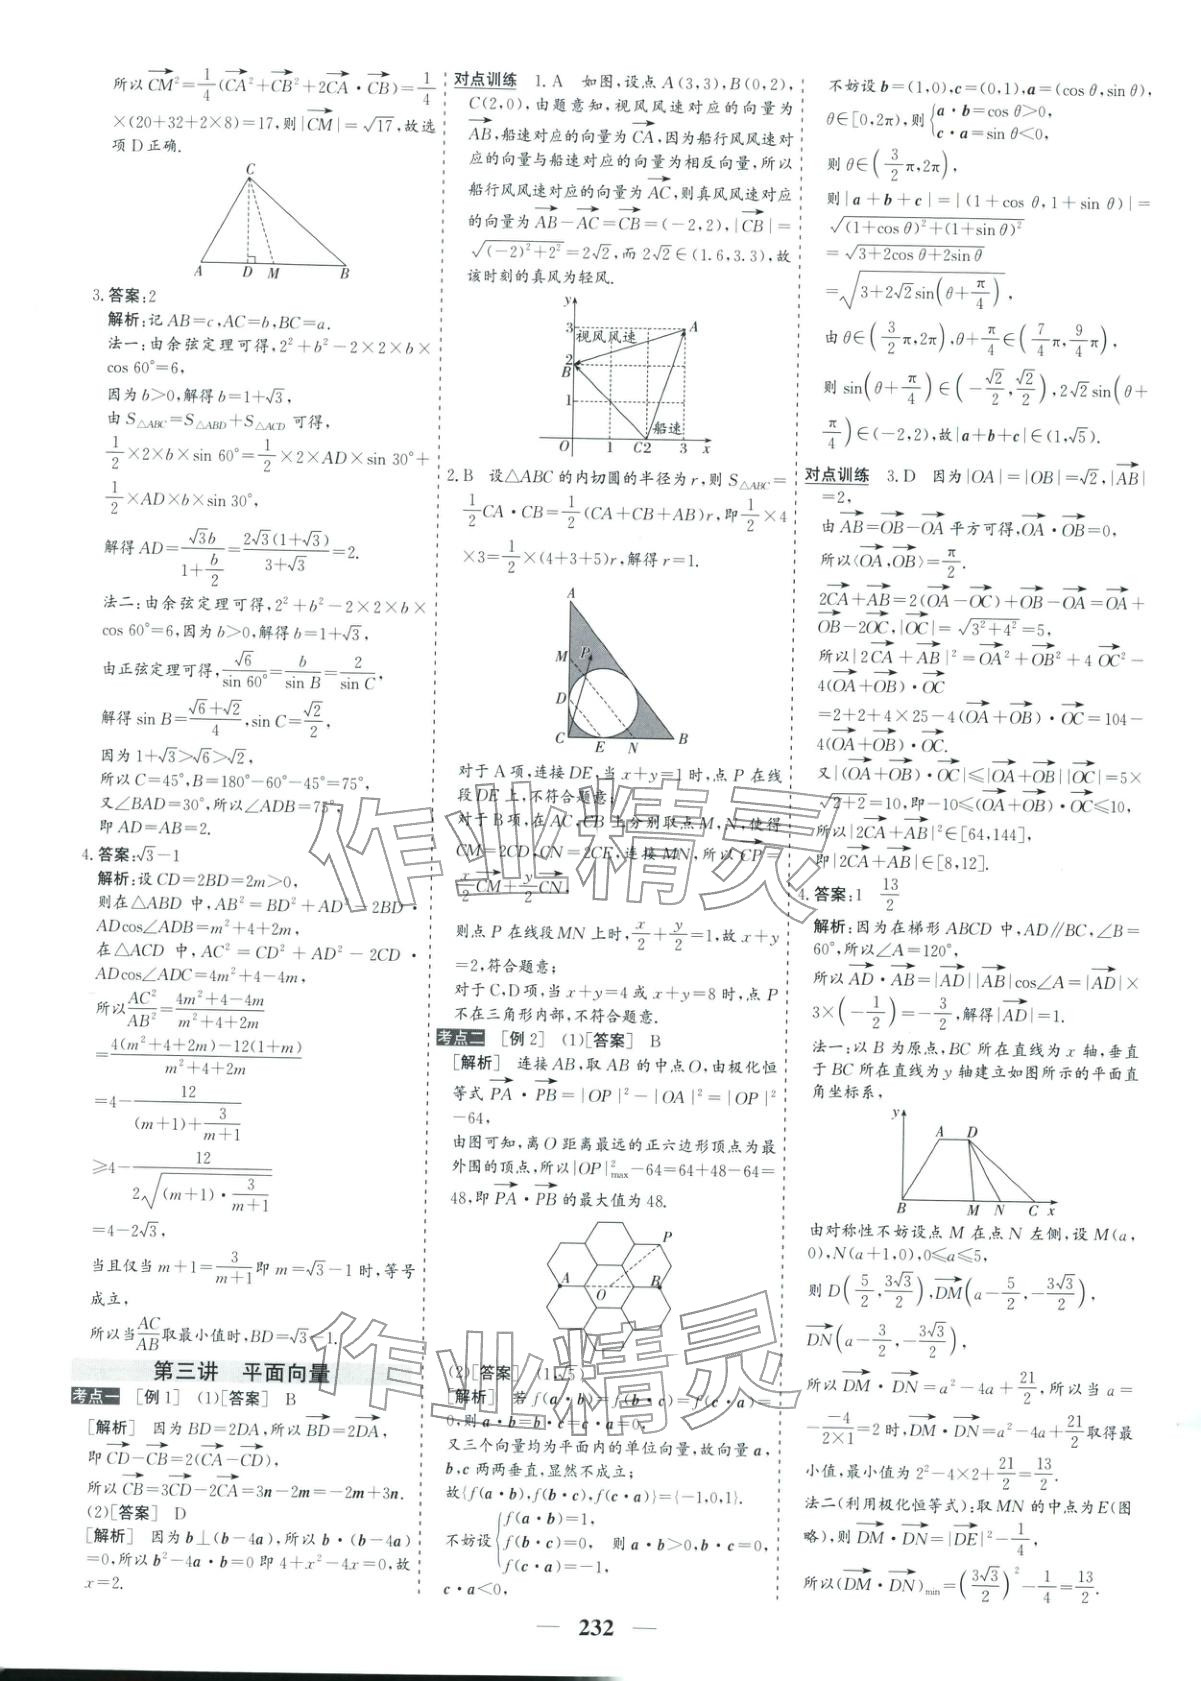 所以CM²=1/4(CA²+CB²+2CA·CB)=1/4
×(20+32+2×8)=17,则|CM|=√17,故选
项D正确.
C
A D M B
3.答案:2
解析:记AB=c,AC=b,BC=a.
法一:由余弦定理可得,2²+b²-2×2×b×
cos 60°=6,
因为b>0,解得b=1+√3,
由S△ABC=S△ABD+S△ACD可得,
1/2×2×b×sin 60°=1/2×2×AD×sin 30°+
1/2×AD×b×sin 30°,
解得AD=√3b/(1+b/2)=2√3(1+√3)/(3+√3)=2.
法二:由余弦定理可得,2²+b²-2×2×b×
cos 60°=6,因为b>0,解得b=1+√3,
由正弦定理可得,√6/sin 60°=b/sin B=2/sin C,
解得sin B=(√6+√2)/4,sin C=√2/2,
因为1+√3>√6>√2,
所以C=45°,B=180°-60°-45°=75°,
又∠BAD=30°,所以∠ADB=75°,
即AD=AB=2.
4.答案:√3-1
解析:设CD=2BD=2m>0,
则在△ABD中,AB²=BD²+AD²-2BD·
ADcos∠ADB=m²+4+2m,
在△ACD中,AC²=CD²+AD²-2CD·
ADcos∠ADC=4m²+4-4m,
所以AC²/AB²=(4m²+4-4m)/(m²+4+2m)
=(4(m²+4+2m)-12(1+m))/(m²+4+2m)
=4-12/((m+1)+3/(m+1))
≥4-12/(2√((m+1)·3/(m+1)))
=4-2√3,
当且仅当m+1=3/(m+1)即m=√3-1时,等号
成立,
所以当AC/AB取最小值时,BD=√3-1.
第三讲 平面向量
考点一 [例1] (1)[答案] B
[解析] 因为BD=2DA,所以BD=2DA,
即CD-CB=2(CA-CD),
所以CB=3CD-2CA=3n-2m=-2m+3n.
(2)[答案] D
[解析] 因为b⊥(b-4a),所以b·(b-4a)
=0,所以b²-4a·b=0即4+x²-4x=0,故
x=2.
对点训练 1.A 如图,设点A(3,3),B(0,2),
C(2,0),由题意知,视风风速对应的向量为
AB,船速对应的向量为CA,因为船行风风速对
应的向量与船速对应的向量为相反向量,所以
船行风风速对应的向量为AC,则真风风速对应
的向量为AB-AC=CB=(-2,2),|CB|=
√((-2)²+2²)=2√2,而2√2∈(1.6,3.3),故
该时刻的真风为轻风.
y
3 视风风速 A
2
B
1
船速
O 1 C2 3 x
2.B 设△ABC的内切圆的半径为r,则S△ABC=
1/2CA·CB=1/2(CA+CB+AB)r,即1/2×4
×3=1/2×(4+3+5)r,解得r=1.
A
M P
D
C E N B
对于A项,连接DE,当x+y=1时,点P在线
段DE上,不符合题意;
对于B项,在AC,CB上分别取点M,N,使得
CM=2CD,CN=2CE,连接MN,所以CP=
x/2CM+y/2CN,
则点P在线段MN上时,x/2+y/2=1,故x+y
=2,符合题意;
对于C,D项,当x+y=4或x+y=8时,点P
不在三角形内部,不符合题意.
考点二 [例2] (1)[答案] B
[解析] 连接AB,取AB的中点O,由极化恒
等式PA·PB=|OP|²-|OA|²=|OP|²
-64,
由图可知,离O距离最远的正六边形顶点为最
外围的顶点,所以|OP|²max-64=64+48-64=
48,即PA·PB的最大值为48.
P
A O B
(2)[答案] (1,√5)
[解析] 若f(a·b)=f(b·c)=f(c·a)=
0,则a·b=b·c=c·a=0,
又三个向量均为平面内的单位向量,故向量a,
b,c两两垂直,显然不成立;
故{f(a·b),f(b·c),f(c·a)}={-1,0,1}.
不妨设{f(a·b)=1, f(b·c)=0, f(c·a)=-1, 则a·b>0,b·c=0,
c·a<0,
不妨设b=(1,0),c=(0,1),a=(cos θ,sin θ),
θ∈[0,2π),则{a·b=cos θ>0, c·a=sin θ<0,
则θ∈(3/2π,2π),
则|a+b+c|=|(1+cos θ,1+sin θ)|=
√((1+cos θ)²+(1+sin θ)²)
=√(3+2cos θ+2sin θ)
=√(3+2√2sin(θ+π/4)),
由θ∈(3/2π,2π),θ+π/4∈(7/4π,9/4π),
则sin(θ+π/4)∈(-√2/2,√2/2),2√2sin(θ+
π/4)∈(-2,2),故|a+b+c|∈(1,√5).
对点训练 3.D 因为|OA|=|OB|=√2,|AB|
=2,
由AB=OB-OA平方可得,OA·OB=0,
所以⟨OA,OB⟩=π/2.
2CA+AB=2(OA-OC)+OB-OA=OA+
OB-2OC,|OC|=√(3²+4²)=5,
所以|2CA+AB|²=OA²+OB²+4OC²-
4(OA+OB)·OC
=2+2+4×25-4(OA+OB)·OC=104-
4(OA+OB)·OC.
又|(OA+OB)·OC|≤|OA+OB||OC|=5×
√(2+2)=10,即-10≤(OA+OB)·OC≤10,
所以|2CA+AB|²∈[64,144],
即|2CA+AB|∈[8,12].
4.答案:1 13/2
解析:因为在梯形ABCD中,AD∥BC,∠B=
60°,所以∠A=120°,
所以AD·AB=|AD||AB|cos∠A=|AD|×
3×(-1/2)=-3/2,解得|AD|=1.
法一:以B为原点,BC所在直线为x轴,垂直
于BC所在直线为y轴建立如图所示的平面直
角坐标系,
y
A D
B M N C x
由对称性不妨设点M在点N左侧,设M(a,
0),N(a+1,0),0≤a≤5,
则D(5/2,3√3/2),DM(a-5/2,-3√3/2),
DN(a-3/2,-3√3/2),
所以DM·DN=a²-4a+21/2,所以当a=
-(-4)/(2×1)=2时,DM·DN=a²-4a+21/2取得最
小值,最小值为2²-4×2+21/2=13/2.
法二(利用极化恒等式):取MN的中点为E(图
略),则DM·DN=|DE|²-1/4,
所以(DM·DN)min=(3√3/2)²-1/4=13/2.
— 232 —
作业精灵
作业精灵